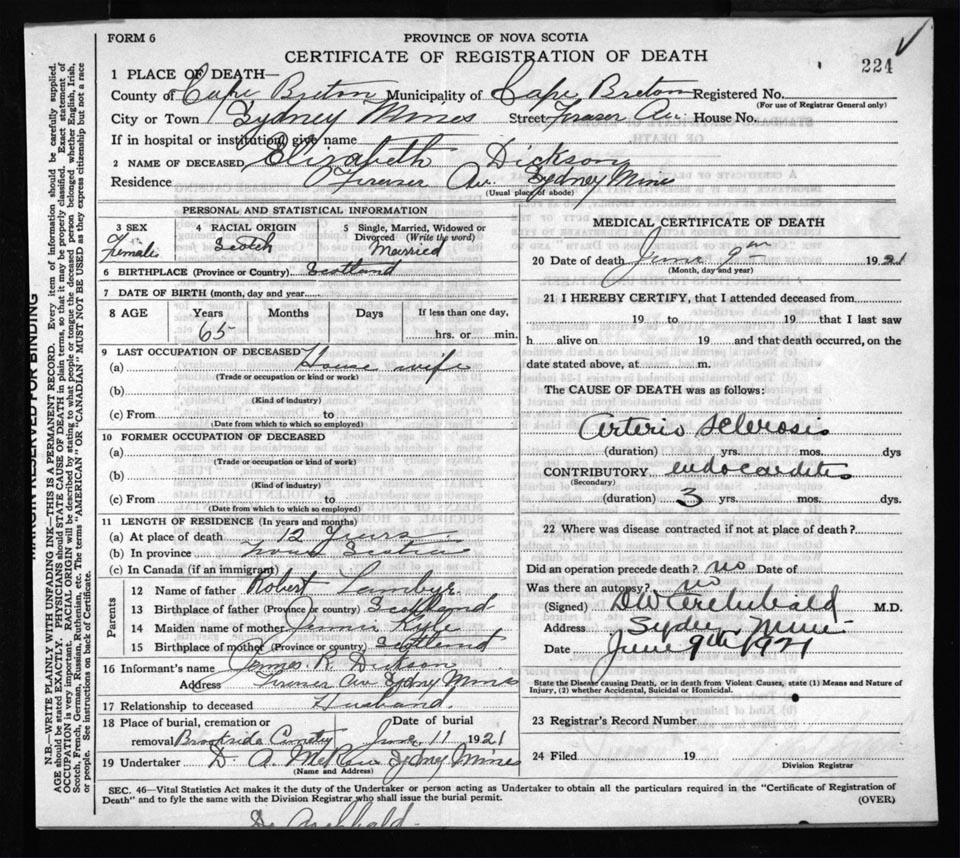 FORM 6
PROVINCE OF NOVA SCOTIA
CERTIFICATE OF REGISTRATION OF DEATH
224
1 PLACE OF DEATH—
County of Cape Breton Municipality of Cape Breton Registered No.
(For use of Registrar General only)
City or Town Sydney Mines Street Fraser Av. House No.
If in hospital or institution, give name
2 NAME OF DECEASED Elizabeth Dickson
Residence Fraser Av. Sydney Mines
(Usual place of abode)
PERSONAL AND STATISTICAL INFORMATION
3 SEX Female
4 RACIAL ORIGIN Scotch
5 Single, Married, Widowed or Divorced (Write the word) Married
6 BIRTHPLACE (Province or Country) Scotland
7 DATE OF BIRTH (month, day and year)
8 AGE Years Months Days If less than one day,
65 hrs. or min.
9 LAST OCCUPATION OF DECEASED
(a) House wife
(Trade or occupation or kind or work)
(b)
(Kind of industry)
(c) From to
(Date from which to which so employed)
10 FORMER OCCUPATION OF DECEASED
(a)
(Trade or occupation or kind of work)
(b)
(Kind of industry)
(c) From to
(Date from which to which so employed)
11 LENGTH OF RESIDENCE (In years and months)
(a) At place of death 12 Years
(b) In province Nova Scotia
(c) In Canada (if an immigrant)
Parents
12 Name of father Robert
13 Birthplace of father (Province or country) Scotland
14 Maiden name of mother Kyle
15 Birthplace of mother (Province or country) Scotland
16 Informant's name James R. Dickson
Address Fraser Av Sydney Mines
17 Relationship to deceased Husband.
18 Place of burial, cremation or removal Brookside Cemetery
Date of burial June 11 1921
19 Undertaker D. A. Sydney Mines
(Name and Address)
MEDICAL CERTIFICATE OF DEATH
20 Date of death June 9th 1921
(Month, day and year)
21 I HEREBY CERTIFY, that I attended deceased from
19 to 19 that I last saw
h alive on 19 and that death occurred, on the
date stated above, at m.
The CAUSE OF DEATH was as follows:
Arterio sclerosis
(duration) yrs. mos. dys
CONTRIBUTORY endocarditis
(Secondary)
(duration) 3 yrs. mos. dys.
22 Where was disease contracted if not at place of death?
Did an operation precede death? no Date of
Was there an autopsy? no
(Signed) DW Archibald M.D.
Address Sydney Mines
Date June 9th 1921
State the Disease causing Death, or in death from Violent Causes, state (1) Means and Nature of
Injury, (2) whether Accidental, Suicidal or Homicidal.
23 Registrar's Record Number
24 Filed 19
Division Registrar
SEC. 46—Vital Statistics Act makes it the duty of the Undertaker or person acting as Undertaker to obtain all the particulars required in the "Certificate of Registration of
Death" and to fyle the same with the Division Registrar who shall issue the burial permit.
(OVER)
Dr Archibald
MARGIN RESERVED FOR BINDING
N.B.—WRITE PLAINLY WITH UNFADING INK—THIS IS A PERMANENT RECORD. Every item of information should be carefully supplied.
AGE should be stated EXACTLY. PHYSICIANS should STATE CAUSE OF DEATH in plain terms, so that it may be properly classified. Exact statement of
OCCUPATION is very important. RACIAL ORIGIN will be described by stating to what people or tongue the deceased person belonged whether English, Irish,
Scotch, French, German, Russian, Ruthenian, etc. The terms "AMERICAN" OR "CANADIAN" MUST NOT BE USED as they express citizenship but not a race
or people. See instructions on back of Certificate.